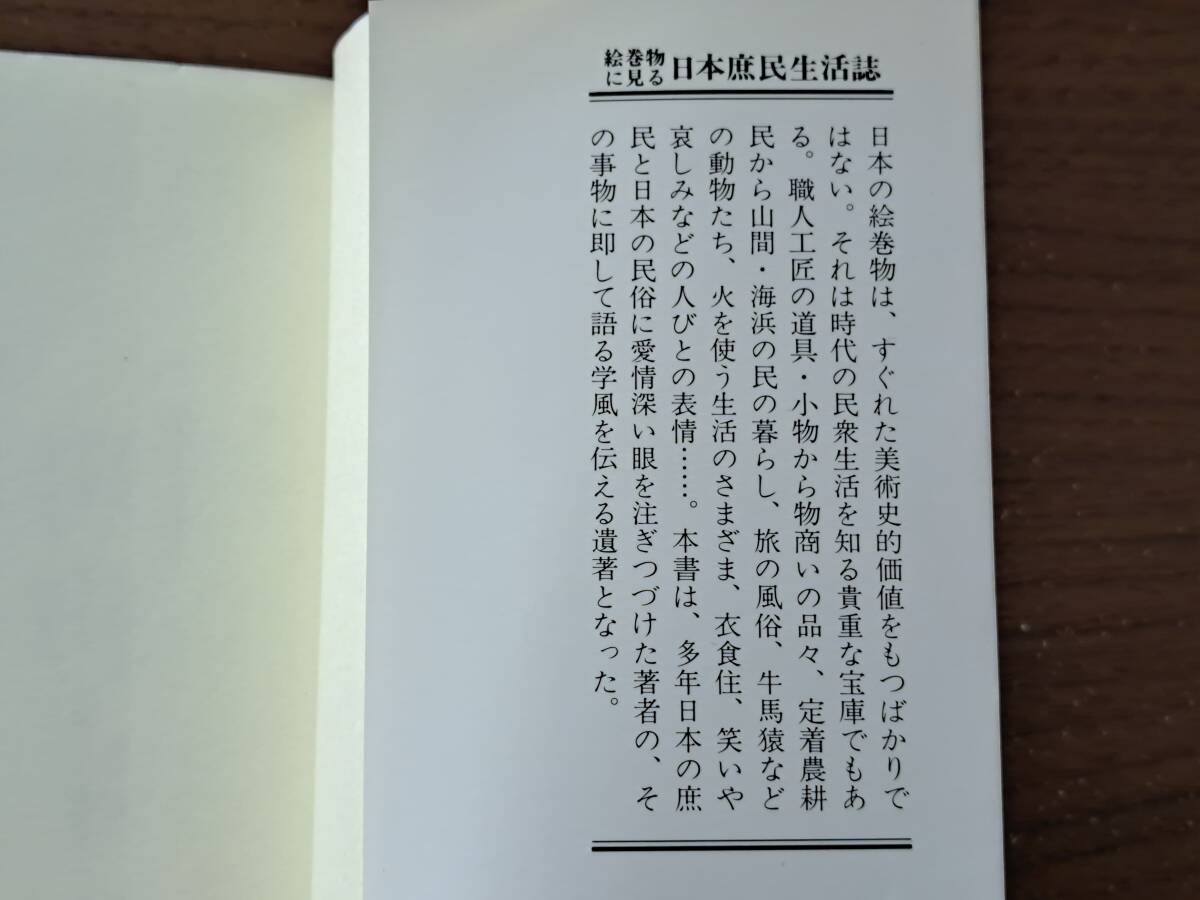 絵巻物
に見る
日本庶民生活誌
日本の絵巻物は、すぐれた美術史的価値をもつばかりで
はない。それは時代の民衆生活を知る貴重な宝庫でもあ
る。職人工匠の道具・小物から物商いの品々、定着農耕
民から山間・海浜の民の暮らし、旅の風俗、牛馬猿など
の動物たち、火を使う生活のさまざま、衣食住、笑いや
哀しみなどの人びとの表情……。本書は、多年日本の庶
民と日本の民俗に愛情深い眼を注ぎつづけた著者の、そ
の事物に即して語る学風を伝える遺著となった。